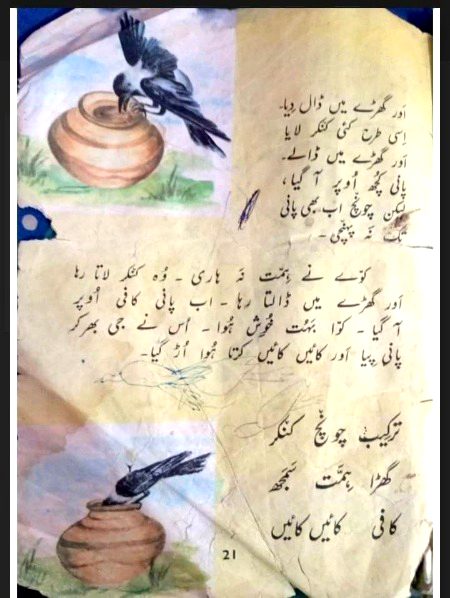 اَور گھڑے میں ڈال دِیا۔
اِسی طرح کئی کنکر لایا
اَور گھڑے میں ڈالے۔
پانی کُچھ اُوپر آ گیا،
لیکن چونچ اب بھی پانی
تک نہ پہنچی۔
کوّے نے ہِمّت نہ ہاری۔ وُہ کنکر لاتا رہا
اَور گھڑے میں ڈالتا رہا۔ اب پانی کافی اُوپر
آ گیا۔ کوّا بہُت خُوش ہُوا۔ اُس نے جی بھر کر
پانی پیا اَور کائیں کائیں کرتا ہُوا اُڑ گیا۔
ترکیب چونچ کنکر
گھڑا ہِمّت سَمجھ
کافی کائیں کائیں
21